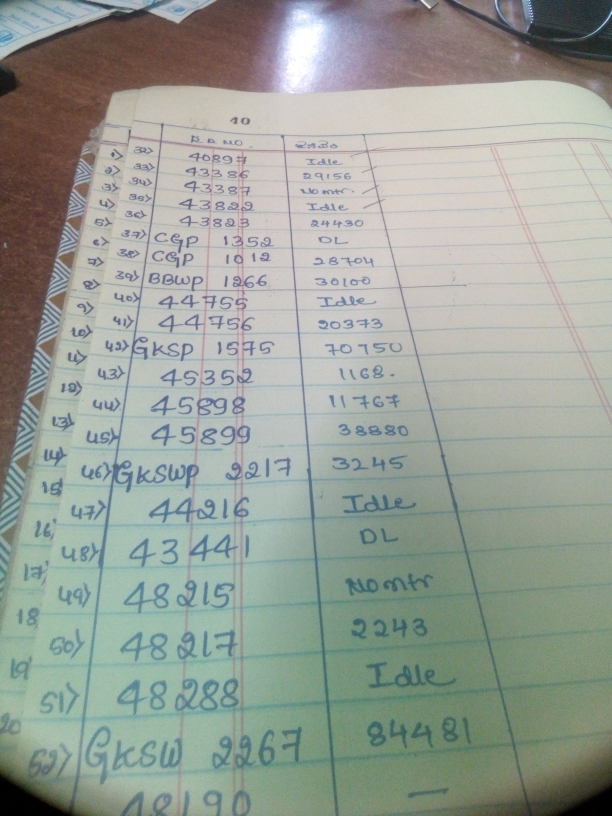 10
R.R.NO.
32) 40897 Idle
33) 43386 29156
34) 43387 Nomtr.
35) 43822 Idle
36) 43823 24430
37) CGP 1352 DL
38) CGP 1012 28704
39) BBWP 1266 30100
40) 44755 Idle
41) 44756 20373
42) GKSP 1575 70750
43) 45352 1168.
44) 45898 11767
45) 45899 38880
46) GKSWP 2217 3245
47) 44216 Idle
48) 43441 DL
49) 48215 Nomtr
50) 48217 2243
51) 48288 Idle
52) GKSW 2267 84481
48190 —